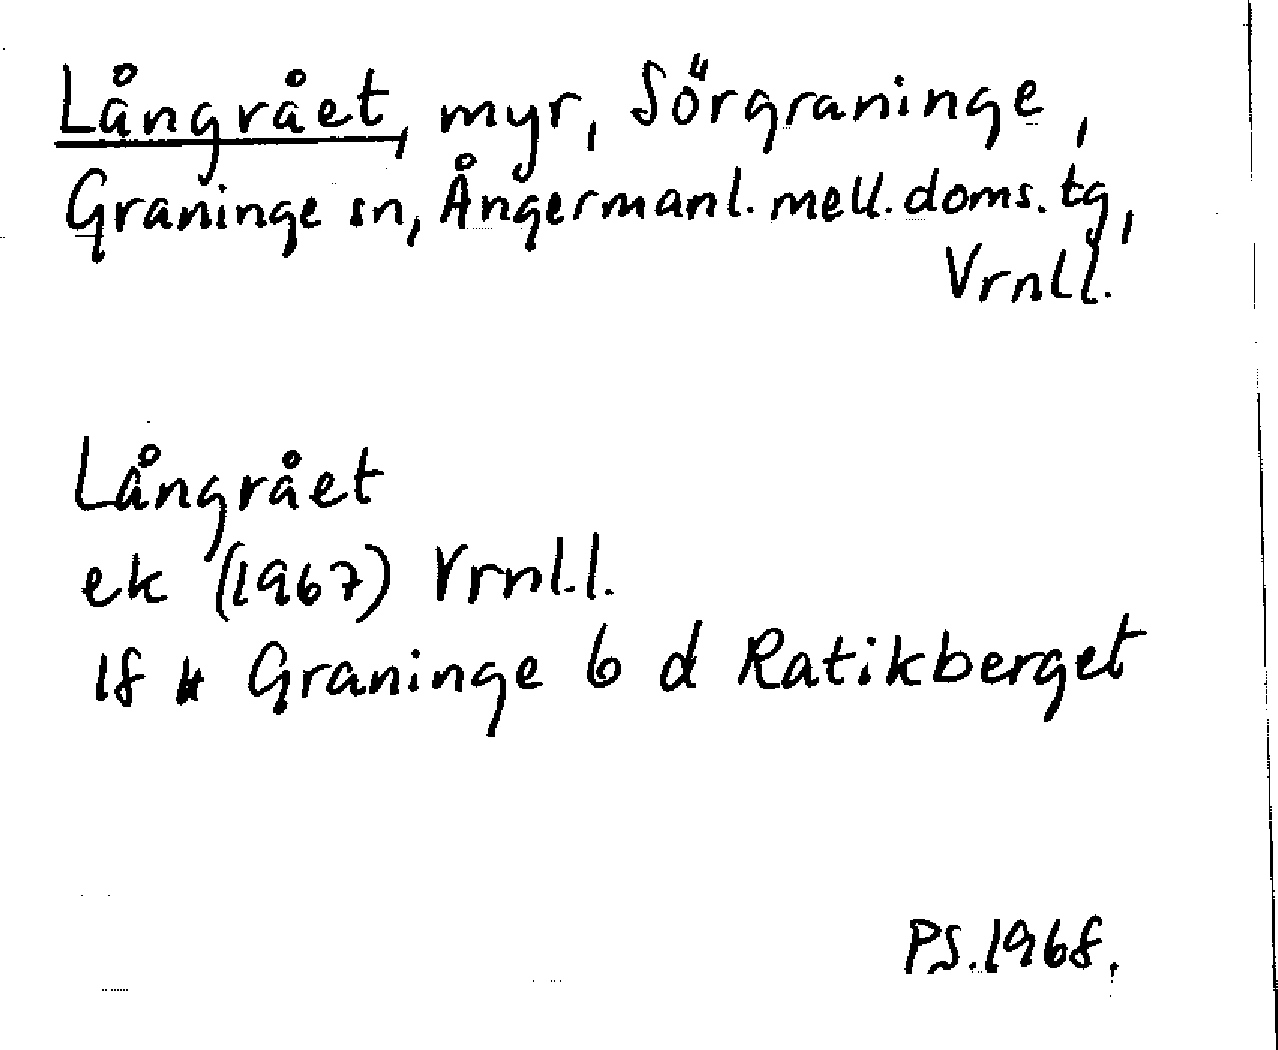 Långrået, myr, Sörgraninge,
Graninge sn, Ångermanl. mell. doms. tg,
Vrnll.
Långrået
ek (1967) Vrnl.l.
18 H Graninge 6 d Ratikberget
PS. 1968.